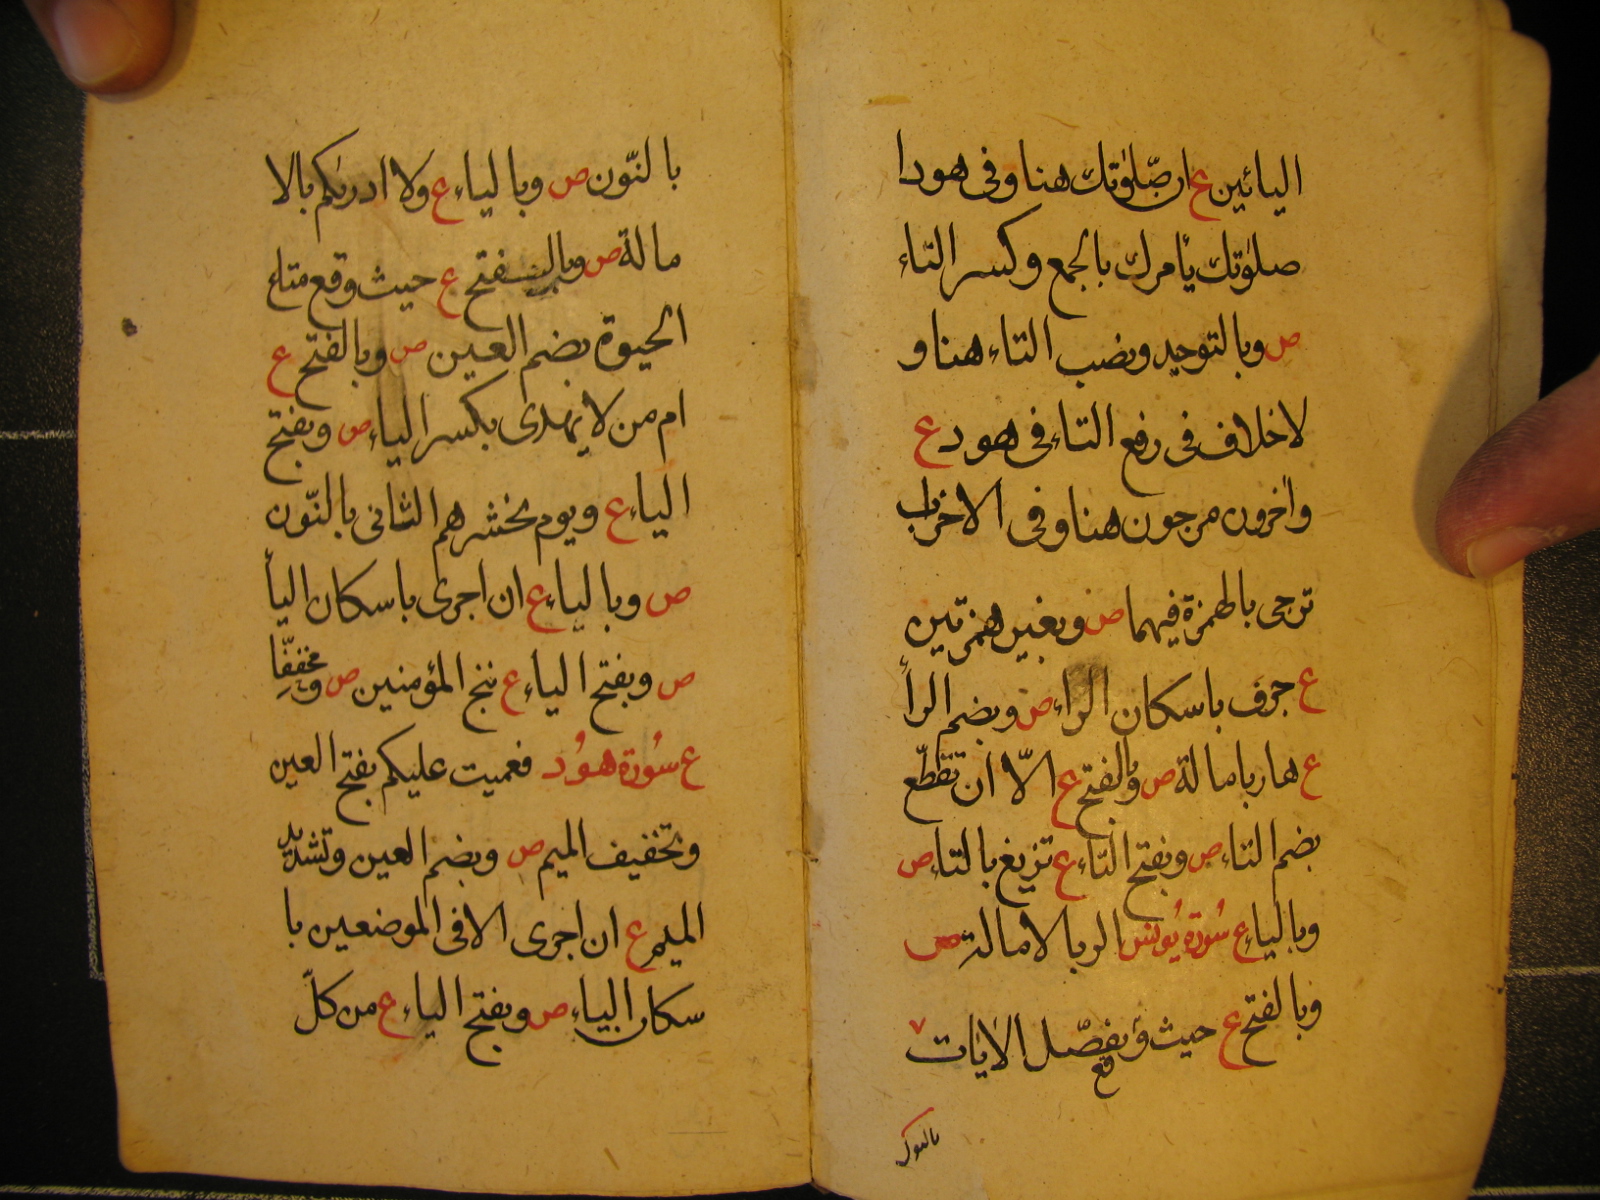 اليائين ع ان صلوتك هنا وفى هود ا
صلوتك يأمرك بالجمع وكسر التاء
ص وبالتوحيد ونصب التاء هنا و
لا خلاف فى رفع التاء فى هود ع
وآخرون مرجون هنا وفى الاحزاب
ترجى بالهمزة فيهما ص وبغير همزتين
ع جرف باسكان الراء ص وبضم الرأ
ع هار بامالة ص وبالفتح ع الّا ان تقطّع
بضم التاء ص وبفتح التاء ع تزيغ بالتاء ص
وبالياء ع سُورة يُونس الر بالامالة ص
وبالفتح ع حيث وقع يفصّل الايات ٧
بالنون
بالنّون ص وبالياء ع ولا ادريكم بالا
مالة ص وبالفتح ع حيث وقع متاع
الحيوة بضم العين ص وبالفتح ع
ام من لا يهدى بكسر الياء ص وبفتح
الياء ع ويوم نحشرهم الثانى بالنّون
ص وبالياء ع ان اجرى باسكان اليأ
ص وبفتح الياء ع ننج المؤمنين ص ومخففّا
ع سُورة هُود فعميت عليكم بفتح العين
وتخفيف الميم ص وبضم العين وتشديد
الميم ع ان اجرى الا فى الموضعين با
سكان الياء ص وبفتح الياء ع من كلّ